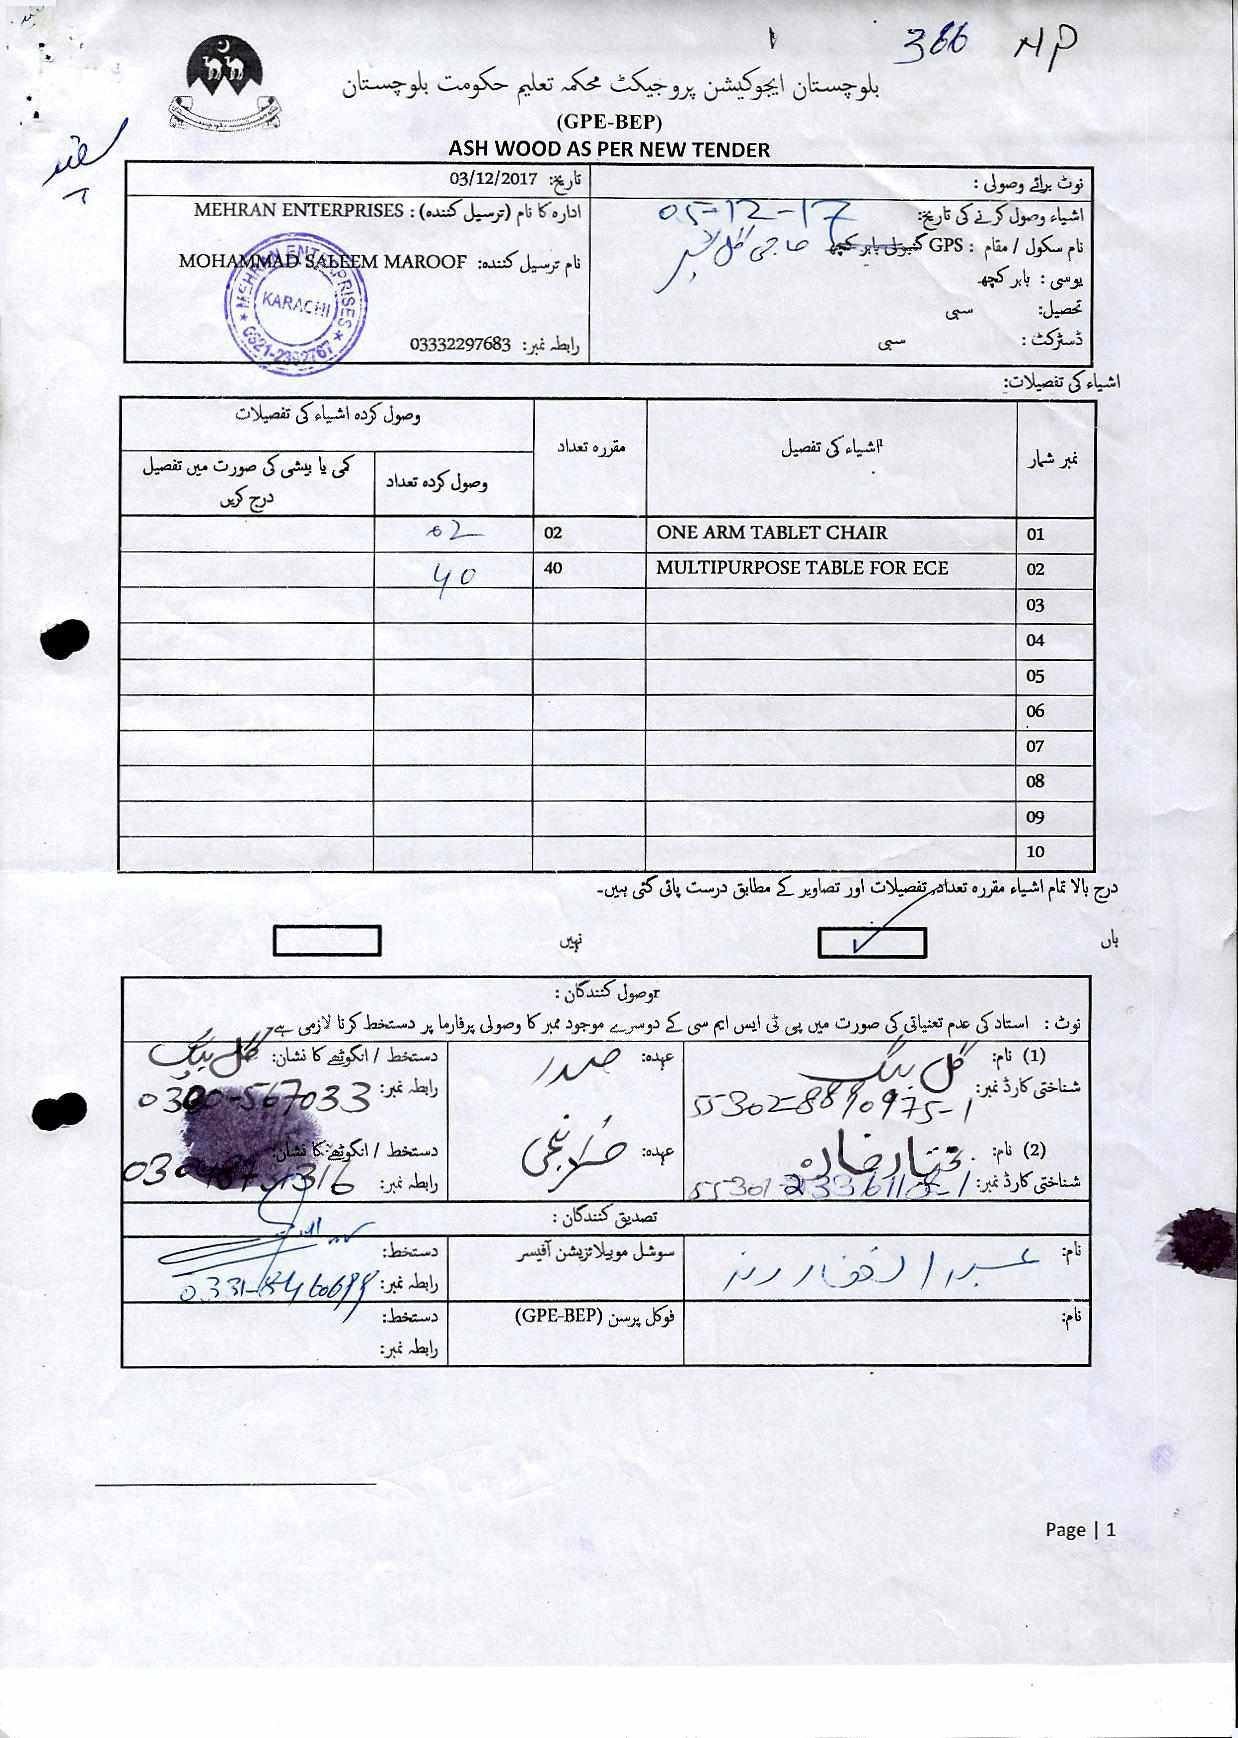 366 MP
بلوچستان ایجوکیشن پروجیکٹ محکمہ تعلیم حکومت بلوچستان
(GPE-BEP)
ASH WOOD AS PER NEW TENDER
نوٹ برائے وصولی :
اشیاء وصول کرنے کی تاریخ: 05-12-17
نام سکول / مقام : GPS حاجی گل شیر
یوسی : بابر کچھ
تحصیل: سبی
ڈسٹرکٹ : سبی
تاریخ: 03/12/2017
ادارہ کا نام (ترسیل کنندہ) : MEHRAN ENTERPRISES
نام ترسیل کنندہ: MOHAMMAD SALEEM MAROOF
رابطہ نمبر: 03332297683
MEHRAN ENTERPRISES
KARACHI
0321-2392767
اشیاء کی تفصیلات:
نمبر شمار اشیاء کی تفصیل مقررہ تعداد وصول کردہ اشیاء کی تفصیلات
وصول کردہ تعداد کمی یا بیشی کی صورت میں تفصیل درج کریں
01 ONE ARM TABLET CHAIR 02 02
02 MULTIPURPOSE TABLE FOR ECE 40 40
03
04
05
06
07
08
09
10
درج بالا تمام اشیاء مقررہ تعداد، تفصیلات اور تصاویر کے مطابق درست پائی گئی ہیں۔
ہاں نہیں
وصول کنندگان :
نوٹ : استاد کی عدم تعنیاتی کی صورت میں پی ٹی ایس ایم سی کے دوسرے موجود ممبر کا وصولی پرفارما پر دستخط کرنا لازمی ہے۔
(1) نام: گل بیگ عہدہ: صدر دستخط / انگوٹھے کا نشان: گل بیگ
شناختی کارڈ نمبر: 55302-8890975-1 رابطہ نمبر: 0300-567033
(2) نام: عہدہ: دستخط / انگوٹھے کا نشان:
شناختی کارڈ نمبر: رابطہ نمبر:
تصدیق کنندگان :
نام: عبدالغفار رند سوشل موبیلائزیشن آفیسر دستخط:
رابطہ نمبر:
نام: فوکل پرسن (GPE-BEP) دستخط:
رابطہ نمبر:
Page | 1